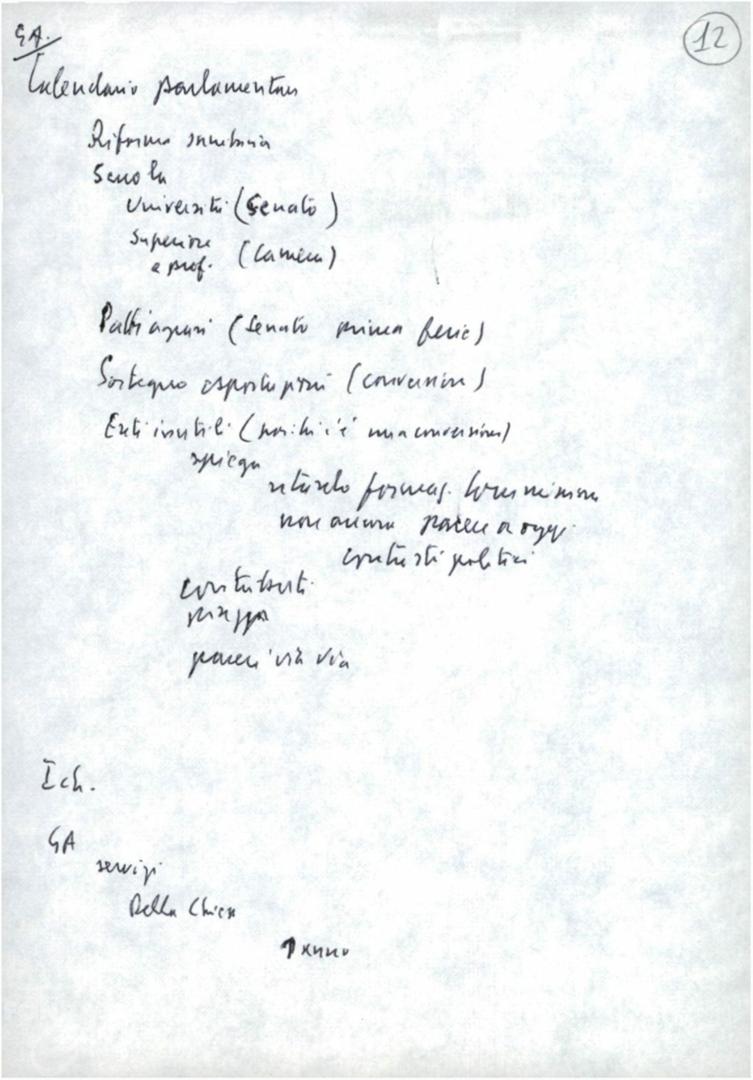 GA.
12
Calendario parlamentare
Riforma sanitaria
Scuola
Università (Senato)
Superiore
e prof. (Camera)
Patti agrari (Senato prima ferie)
Sostegno esportazioni (conversione)
Enti inutili (non c'è conversione)
spiega
ritardo formaz. Commissione
non ancora parere a oggi
contrasti politici
contributi
pareri via via
Ich.
GA
servizi
Della Chiesa
1 anno